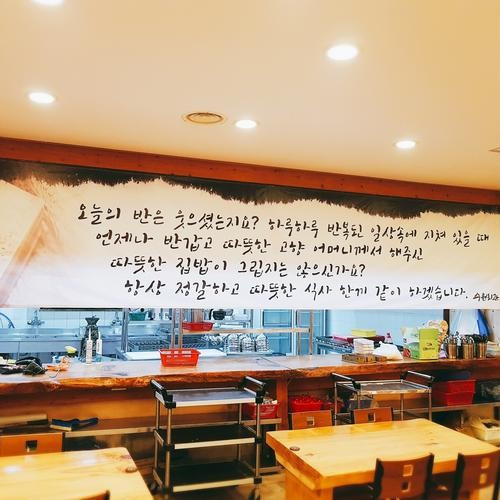 오늘의 반은 웃으셨는지요? 하루하루 반복된 일상속에 지쳐 있을 때
언제나 반갑고 따뜻한 고향 어머니께서 해주신
따뜻한 집밥이 그립지는 않으신가요?
항상 정갈하고 따뜻한 식사 한끼 같이 하겠습니다.